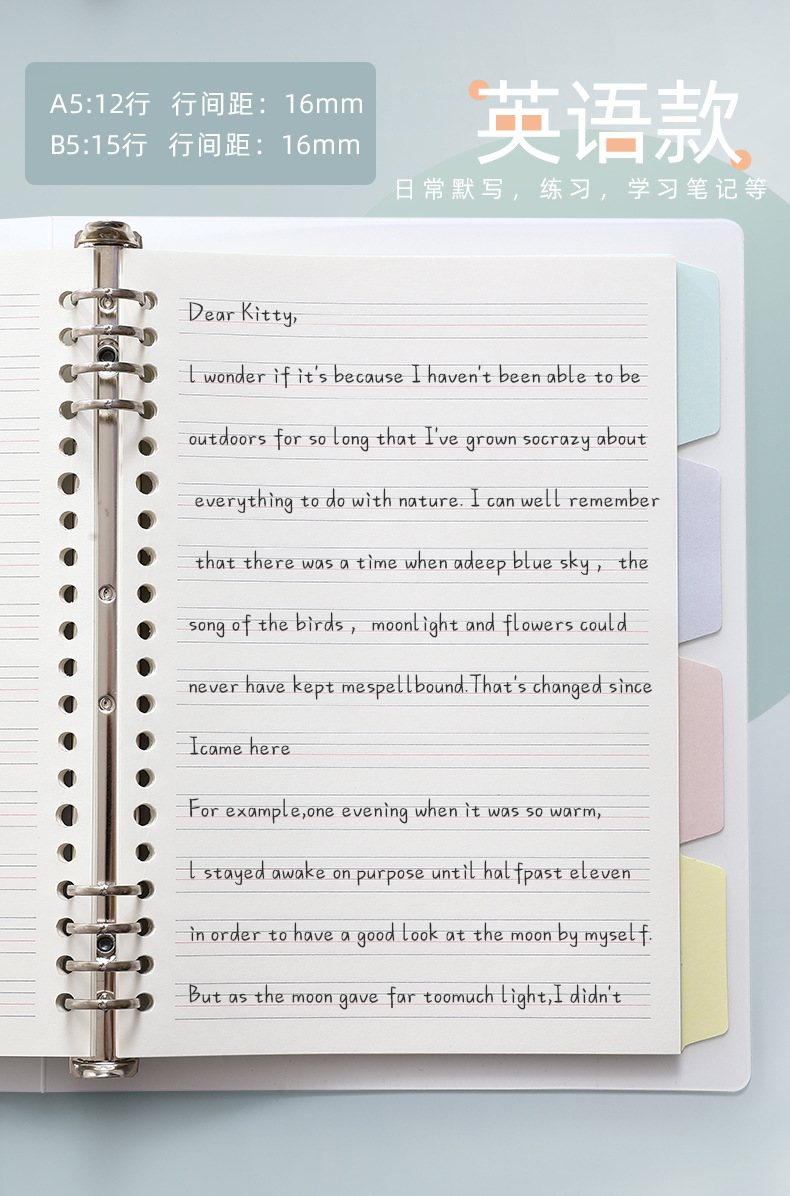 A5:12行 行间距：16mm
B5:15行 行间距：16mm
英语款
日常默写，练习，学习笔记等
Dear Kitty,
l wonder if it's because I haven't been able to be
outdoors for so long that I've grown socrazy about
everything to do with nature. I can well remember
that there was a time when adeep blue sky , the
song of the birds , moonlight and flowers could
never have kept mespellbound.That's changed since
Icame here
For example,one evening when it was so warm,
l stayed awake on purpose until halfpast eleven
in order to have a good look at the moon by myself.
But as the moon gave far toomuch light,I didn't